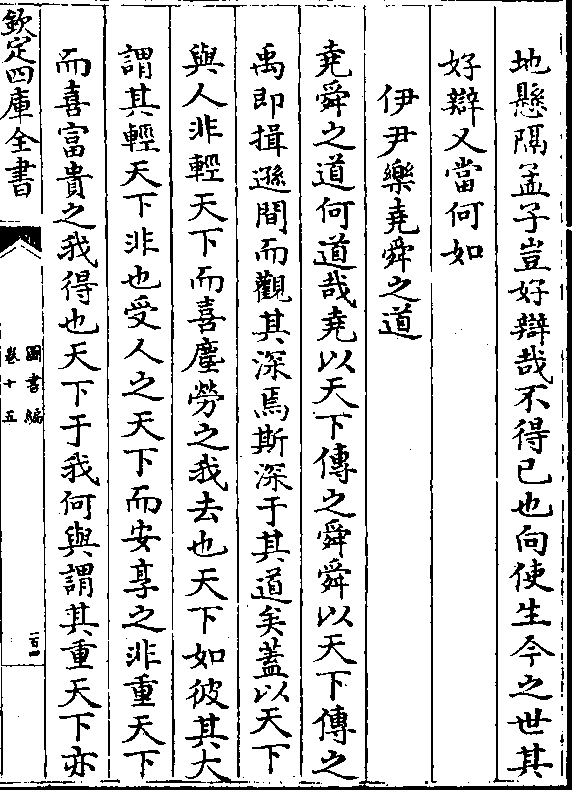 地懸隔孟子豈好辯哉不得已也向使生今之世其
好辯又當何如
伊尹樂堯舜之道
堯舜之道何道哉堯以天下傳之舜舜以天下傳之
禹即揖遜間而觀其深焉斯深于其道矣蓋以天下
與人非輕天下而喜塵勞之我去也天下如彼其大
謂其輕天下非也受人之天下而安享之非重天下
而喜富貴之我得也天下于我何與謂其重天下亦
欽定四庫全書
圖書編
卷十五
一百一